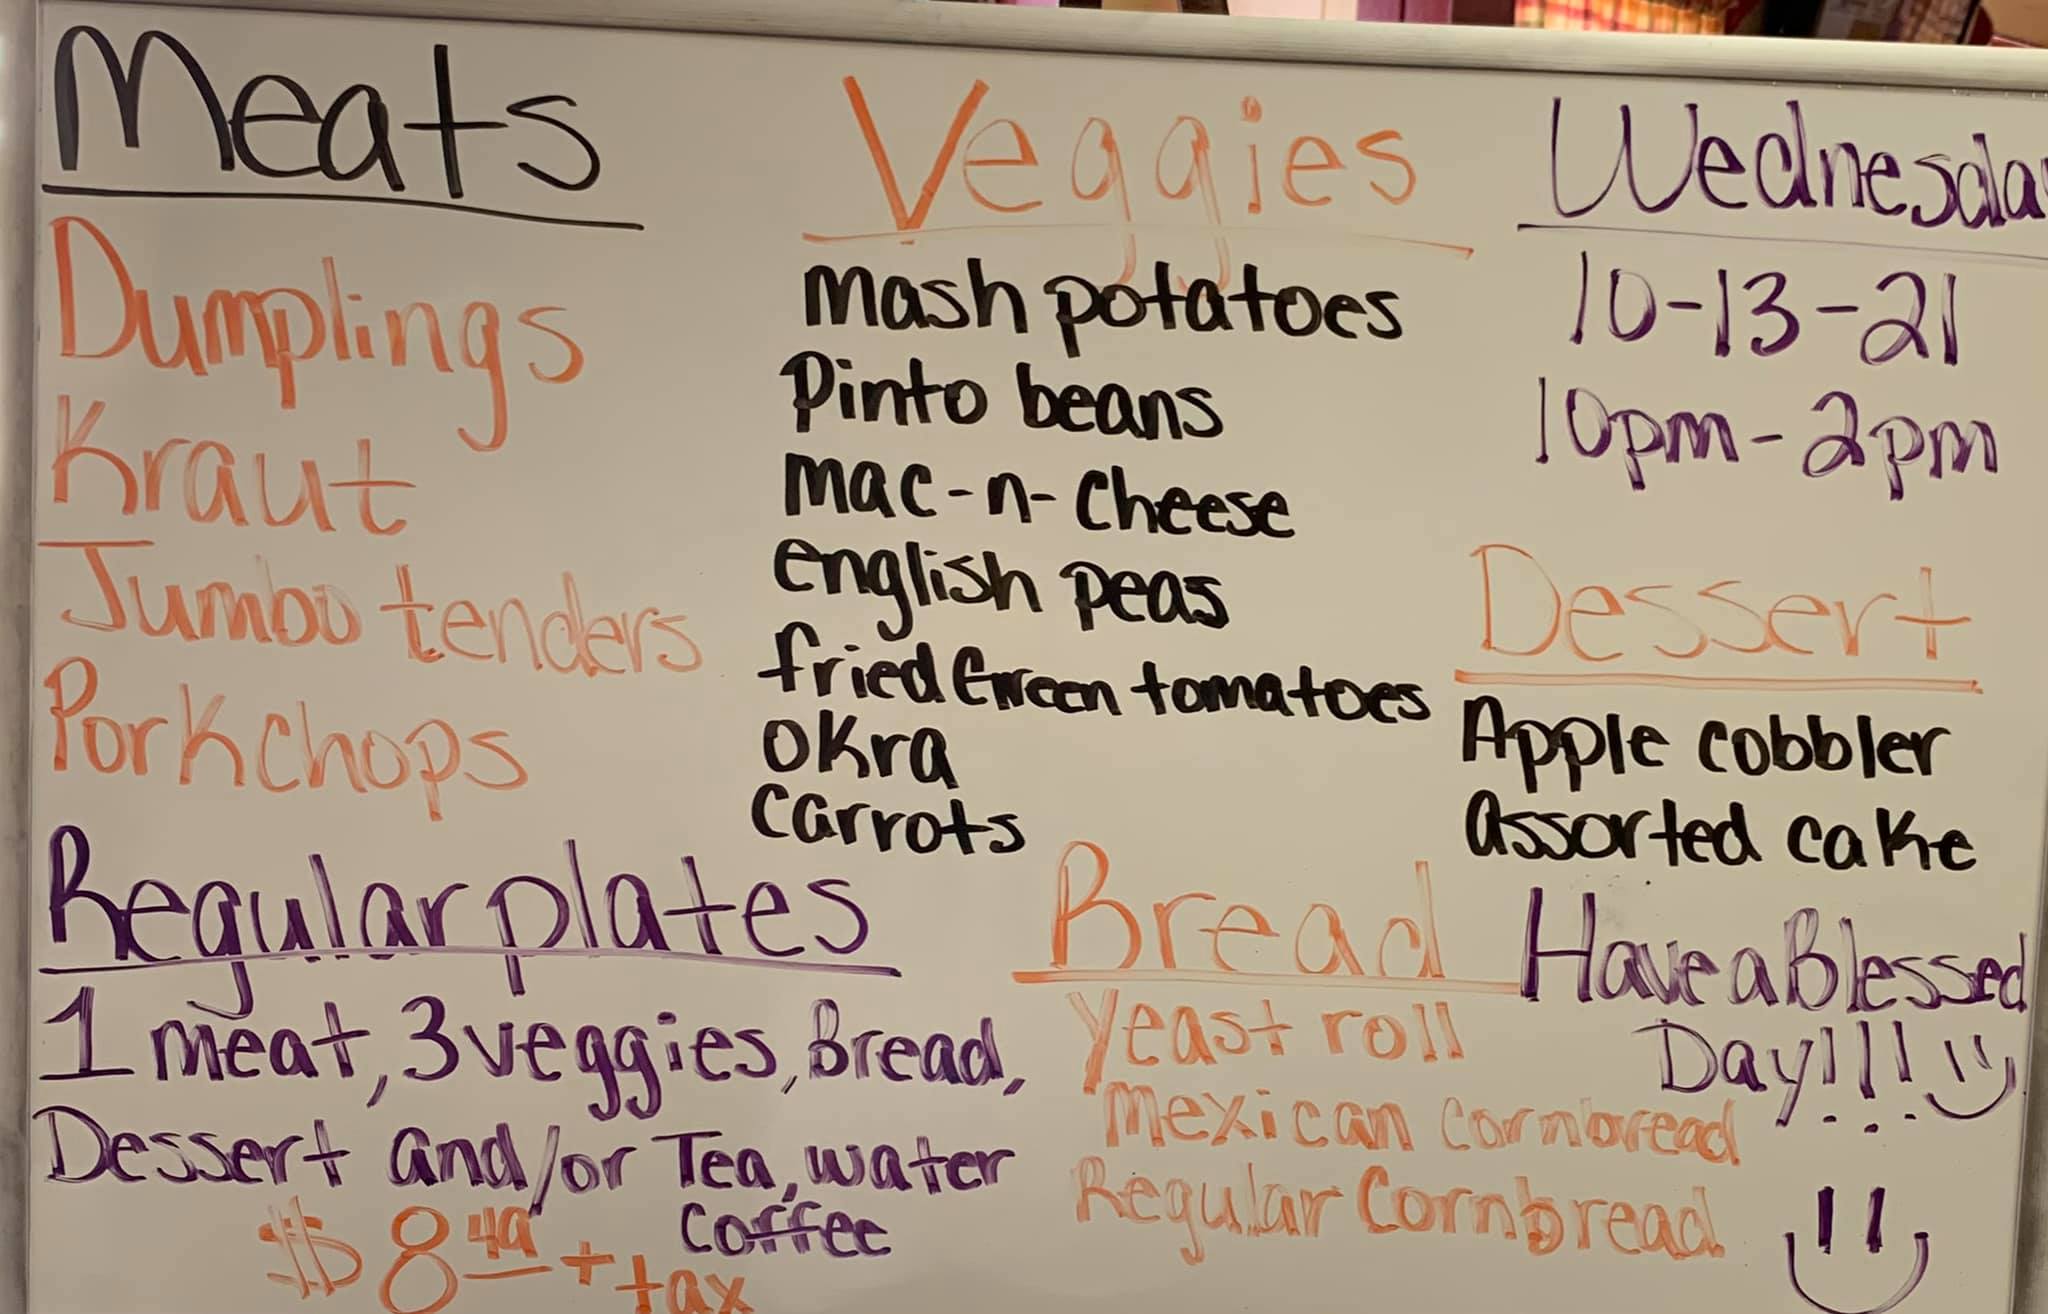 Meats
Dumplings
Kraut
Jumbo tenders
Porkchops
Veggies
mash potatoes
Pinto beans
mac-n-cheese
english peas
fried Green tomatoes
okra
carrots
Wednesda
10-13-21
10pm-2pm
Dessert
Apple cobbler
assorted cake
Regular plates
1 meat, 3 veggies, Bread,
Dessert and/or Tea, water
coffee
$8.49 + tax
Bread
Yeast roll
mexican cornbread
Regular Cornbread
Have a Blessed
Day!!!